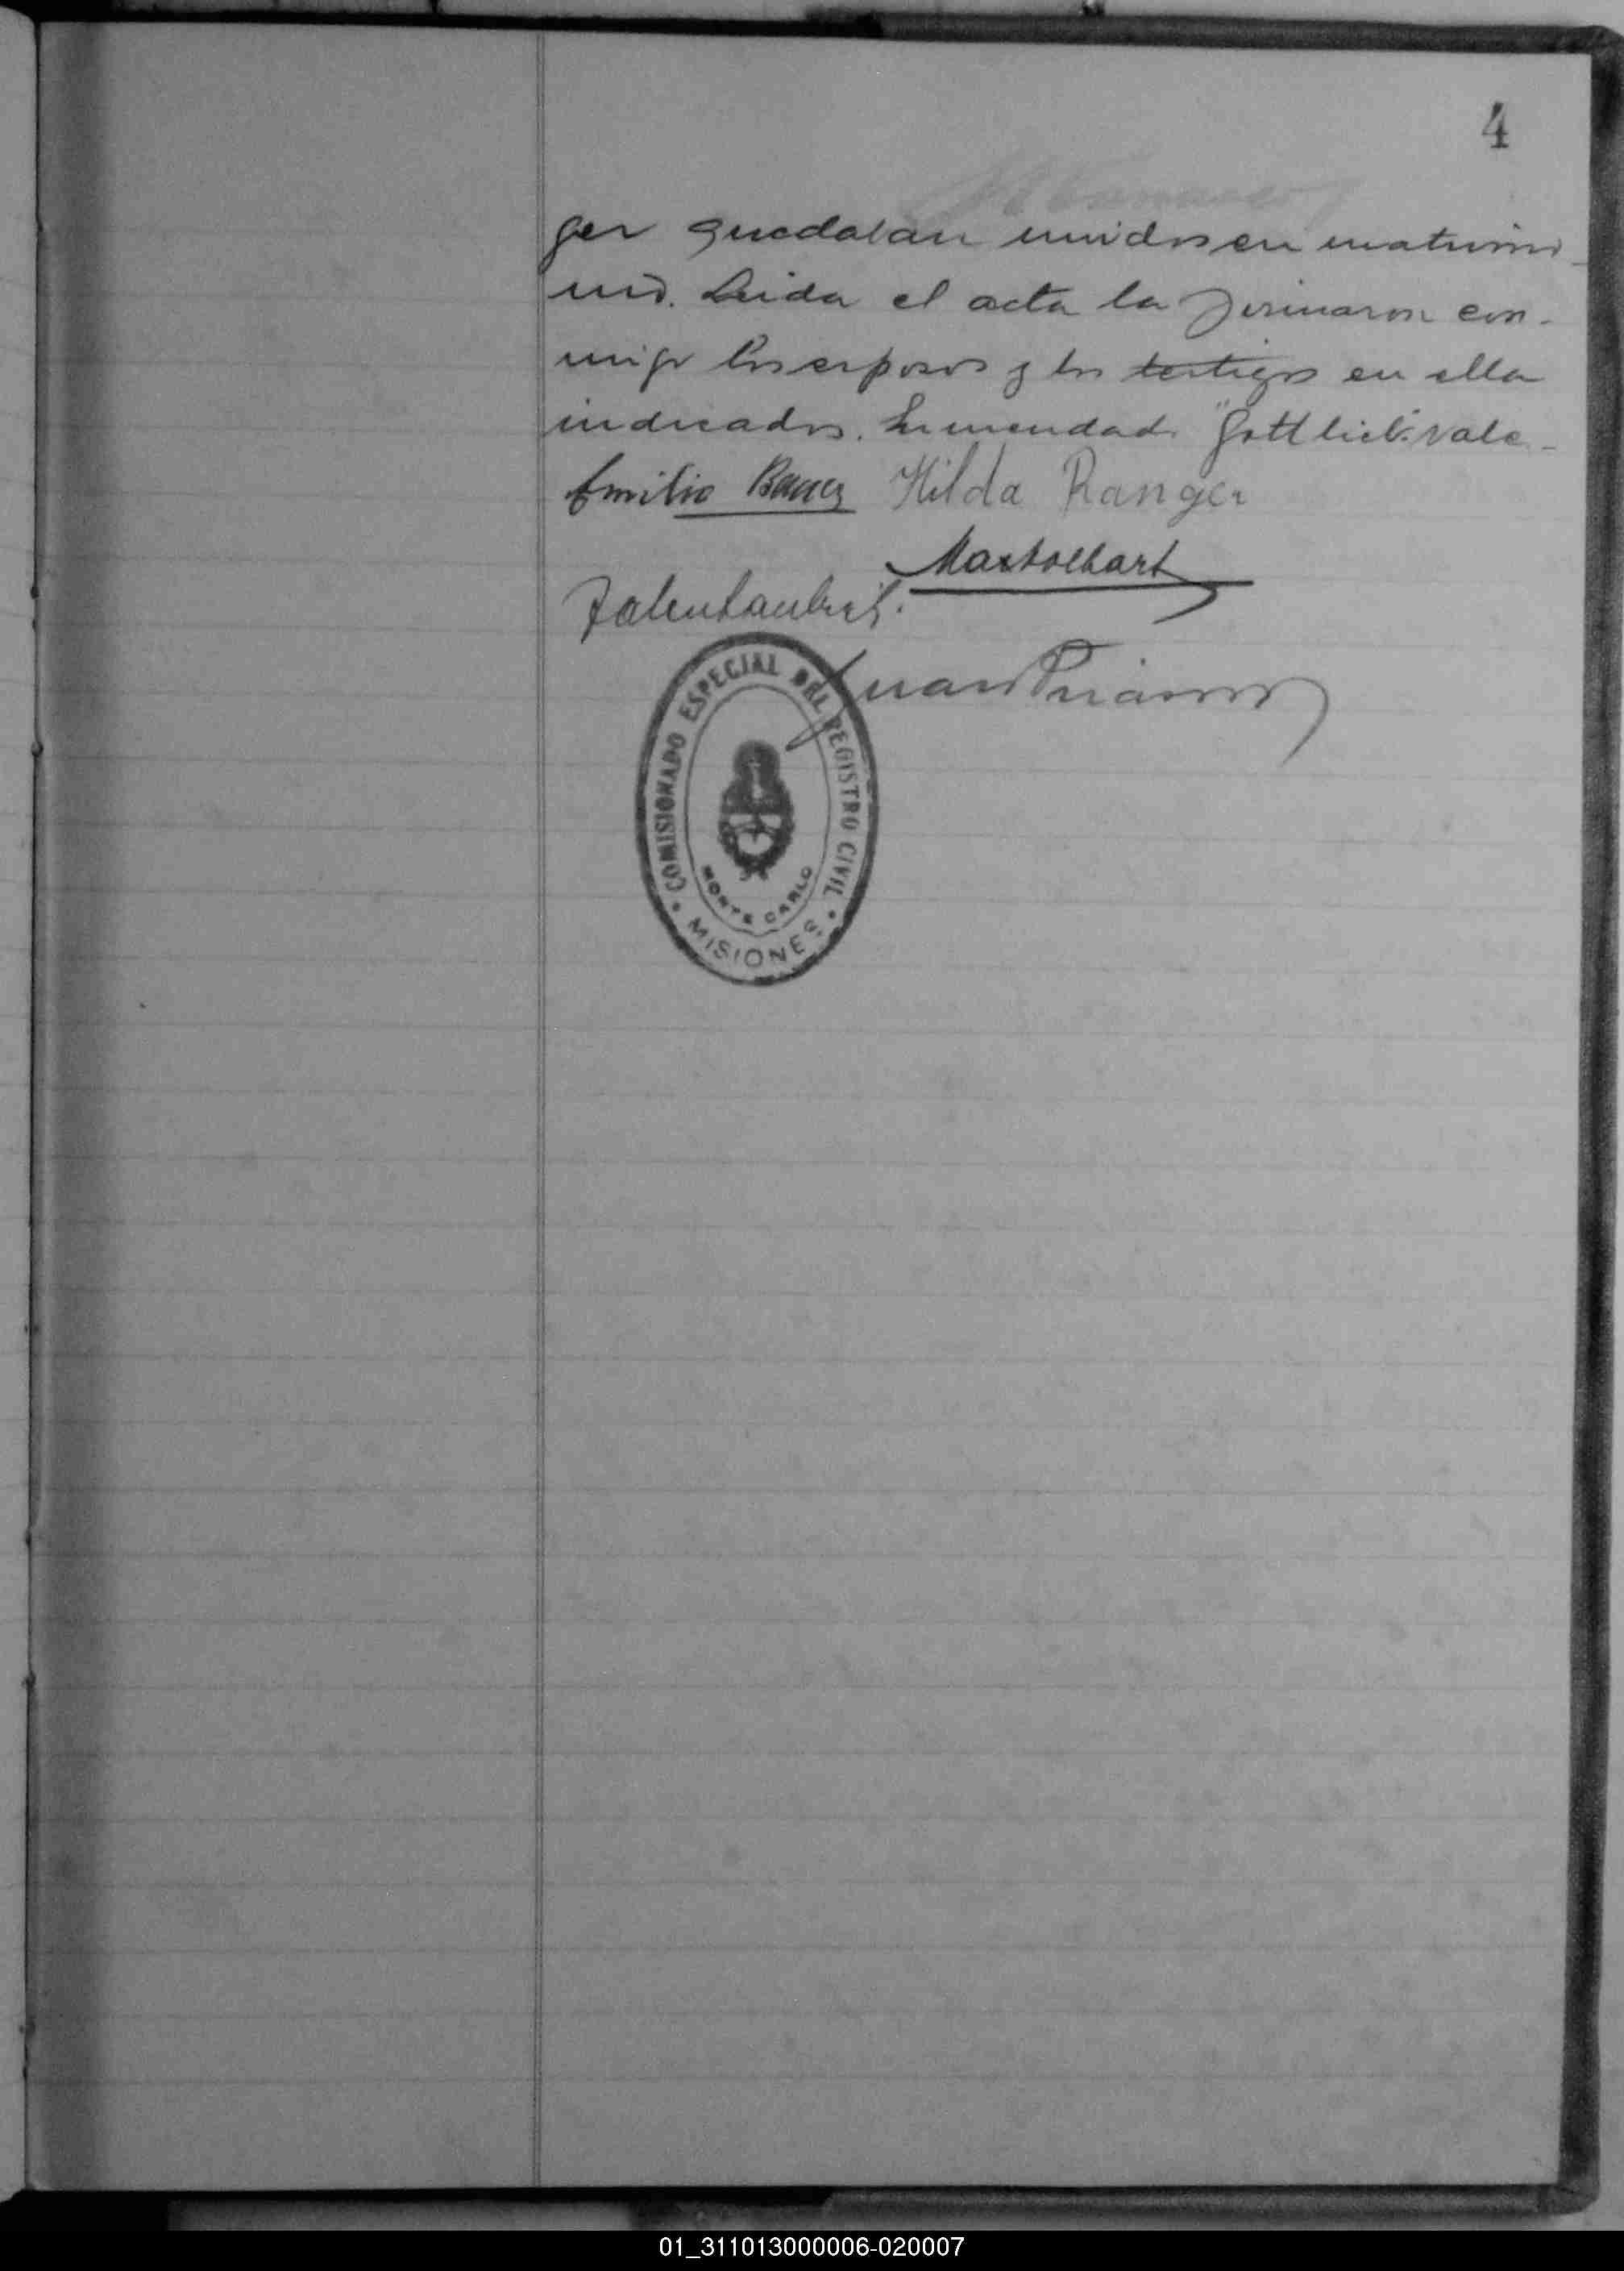 4
ger quedaban unidos en matrimo-
nio. Leida el acta la firmaron con-
migo los esposos y los testigos en ella
indicados. Enmendado "Gottlieb" vale-
Emilio Bauer Hilda Ranger
Juan
COMISIONADO ESPECIAL DEL REGISTRO CIVIL
MONTE CARLO
MISIONES
01_311013000006-020007